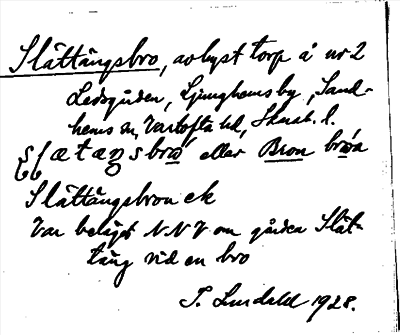 Slättängsbro, avhyst torp å nr 2
Ledsgården, Ljunghems by, Sand-
hems sn, Vartofta hd, Skarab. l.
slætaŋsbrɷ́ eller Bron brɷ́a
Slättängsbron ek
Var beläget N.N.V om gården Slät-
täng vid en bro
T. Lundahl 1928.